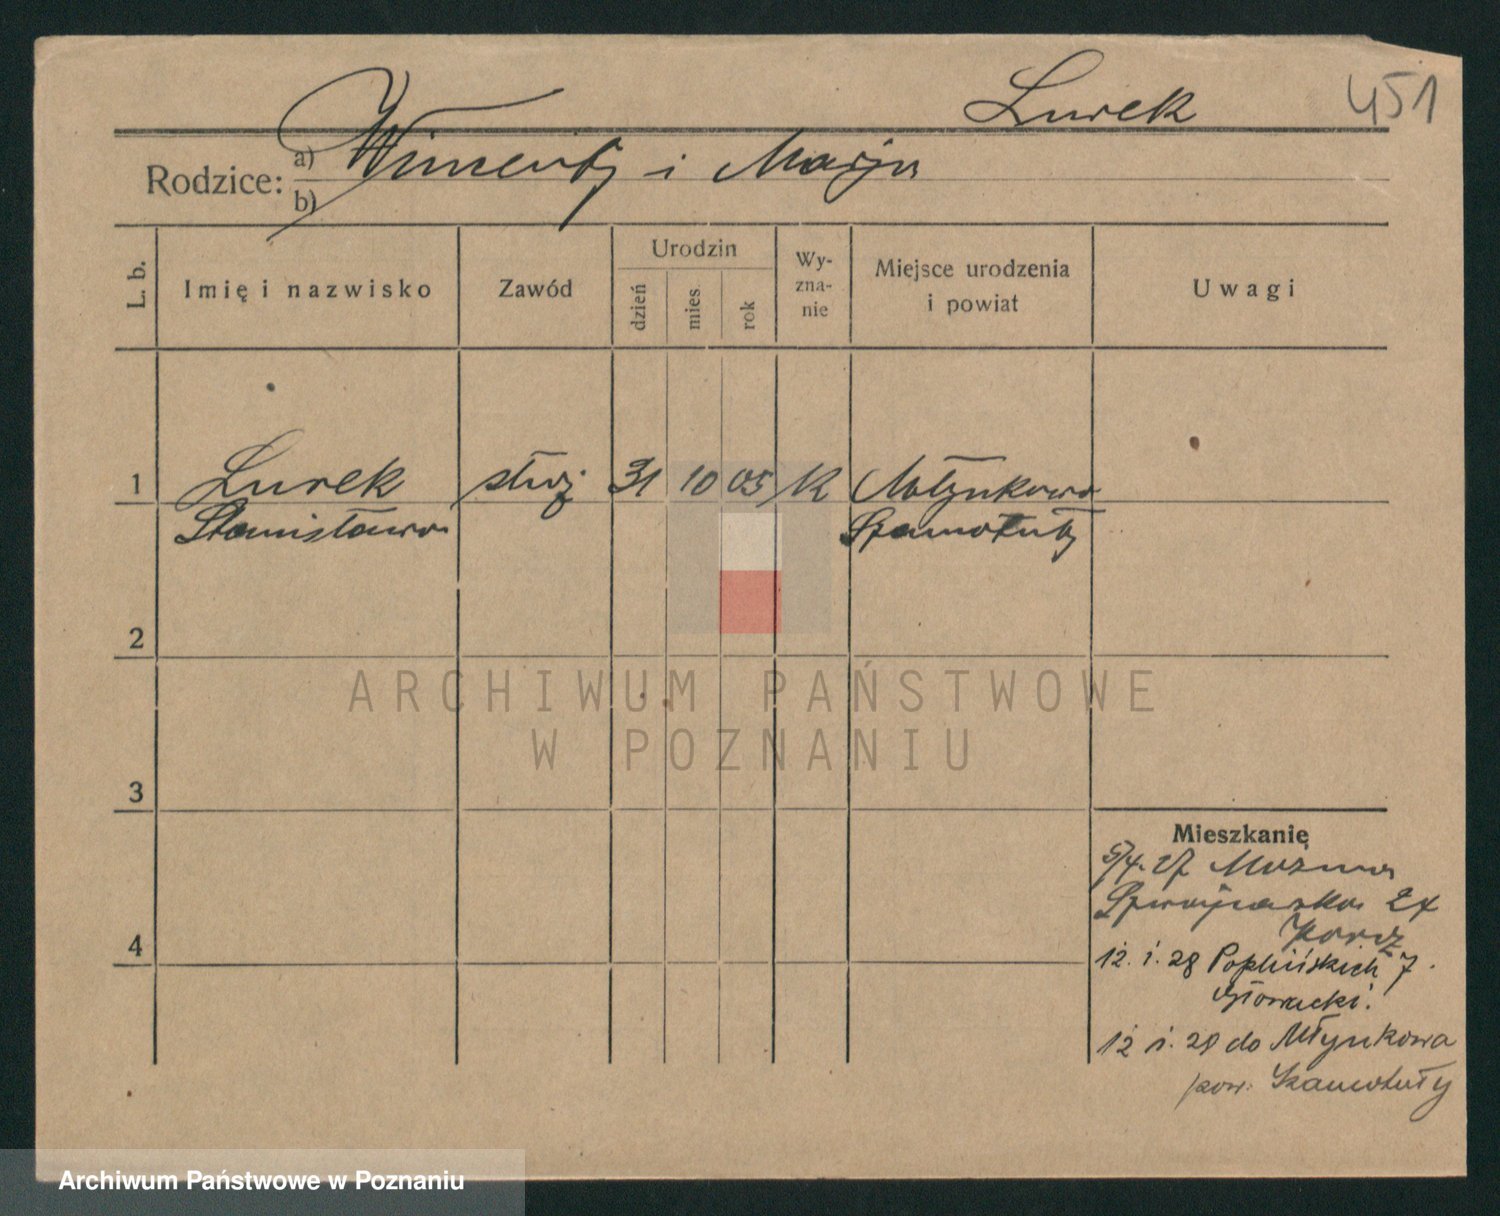 Lurek
451
Rodzice: a) Wincenty i Marja
b)
L. b.
Imię i nazwisko
Zawód
Urodzin
dzień
mies.
rok
Wy-
zna-
nie
Miejsce urodzenia
i powiat
Uwagi
1 Lurek służ 31 10 05 K Młynkowo
Stanisława Szamotuły
2
3
4
ARCHIWUM PAŃSTWOWE
W POZNANIU
Mieszkanię
5/4. 27
Szwajcarska 24
12. i. 28 Poplińskich 7.
Głowacki.
12 i. 28 do Młynkowa
pow. Szamotuły
Archiwum Państwowe w Poznaniu